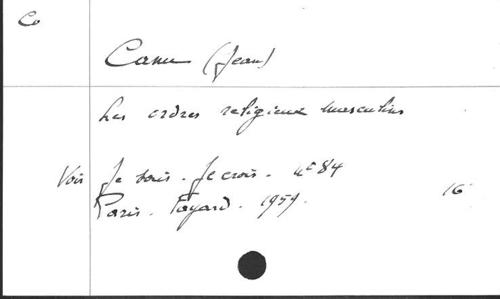 Co
Canu (Jean)
Les ordres religieux masculins
Voir Je sais. Je crois. n° 84
Paris. Fayard. 1959. 16